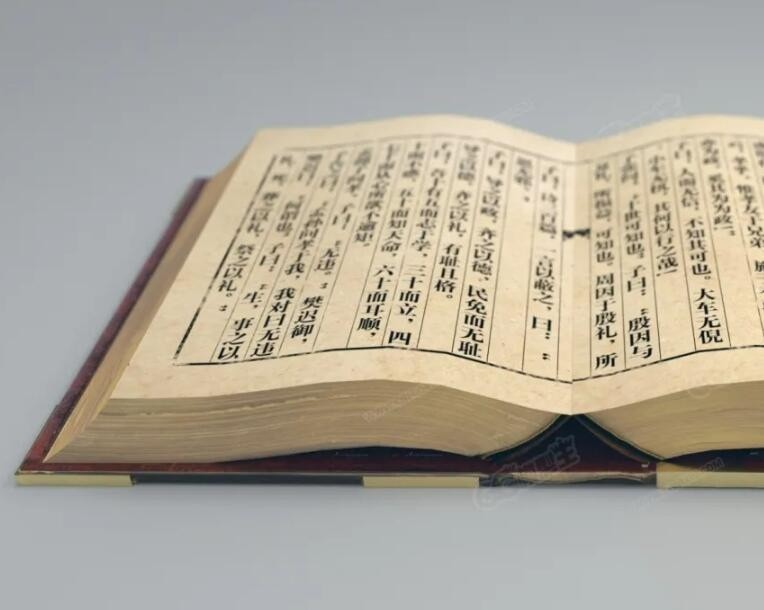 孝乎，惟孝友于兄弟，施
亦为政，奚其为为政。
子曰：人而无信，不知其可也。大车无倪
小车无杌，其何以行之哉！
子张问：十世可知也。子曰：“殷因与
夏礼，所损益，可知也。周因于殷礼，所
子曰：诗三百篇，一言以蔽之，曰：“
思无邪”。
子曰：导之以政，齐之以德，民免而无耻
导之以德，齐之以礼，有耻且格。
子曰：吾十有五而志于学，三十而立，四
十而不惑，五十而知天命，六十而耳顺，
七十而从心所欲不逾矩。
孟懿子问孝，子曰：“无违。”樊迟御，
子告之曰：“孟孙问孝于我，我对曰无违
樊迟曰：“何谓也。”子曰：“生，事之以
礼，死，葬之以礼，祭之以礼。”